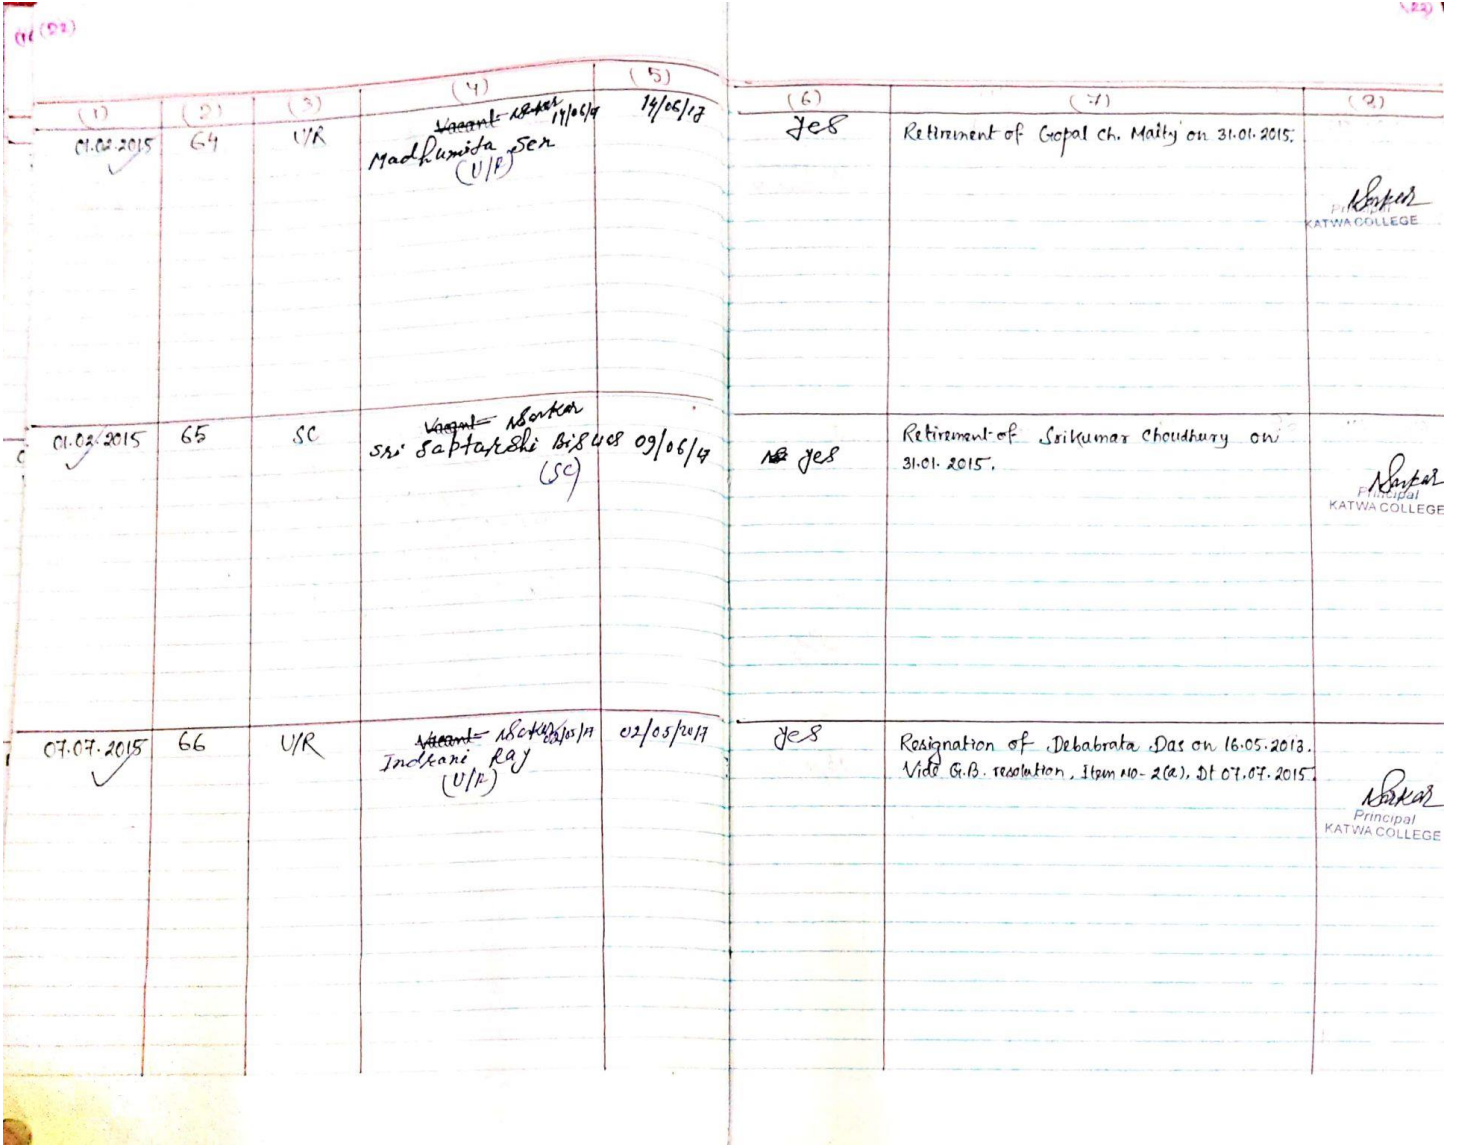 (D2)
(22)
(1) (2) (3) (4) (5) (6) (7)
01.02.2015 64 U/R Vacant Sarkar 14/06/17 14/06/17 yes Retirement of Gopal Ch. Maity on 31.01.2015.
Madhumita Sen
(U/R)
Sarkar
Principal
KATWA COLLEGE
01.02.2015 65 SC Vacant Sarkar
Sri Saptarshi Biswas 09/06/17 yes Retirement of Srikumar Choudhury on
(SC) 31.01.2015.
Sarkar
Principal
KATWA COLLEGE
07.07.2015 66 U/R Vacant Sarkar 02/05/17 02/05/2017 yes Resignation of Debabrata Das on 16.05.2013.
Indrani Ray Vide G.B. resolution, Item no- 2(a), Dt 07.07.2015
(U/R)
Sarkar
Principal
KATWA COLLEGE